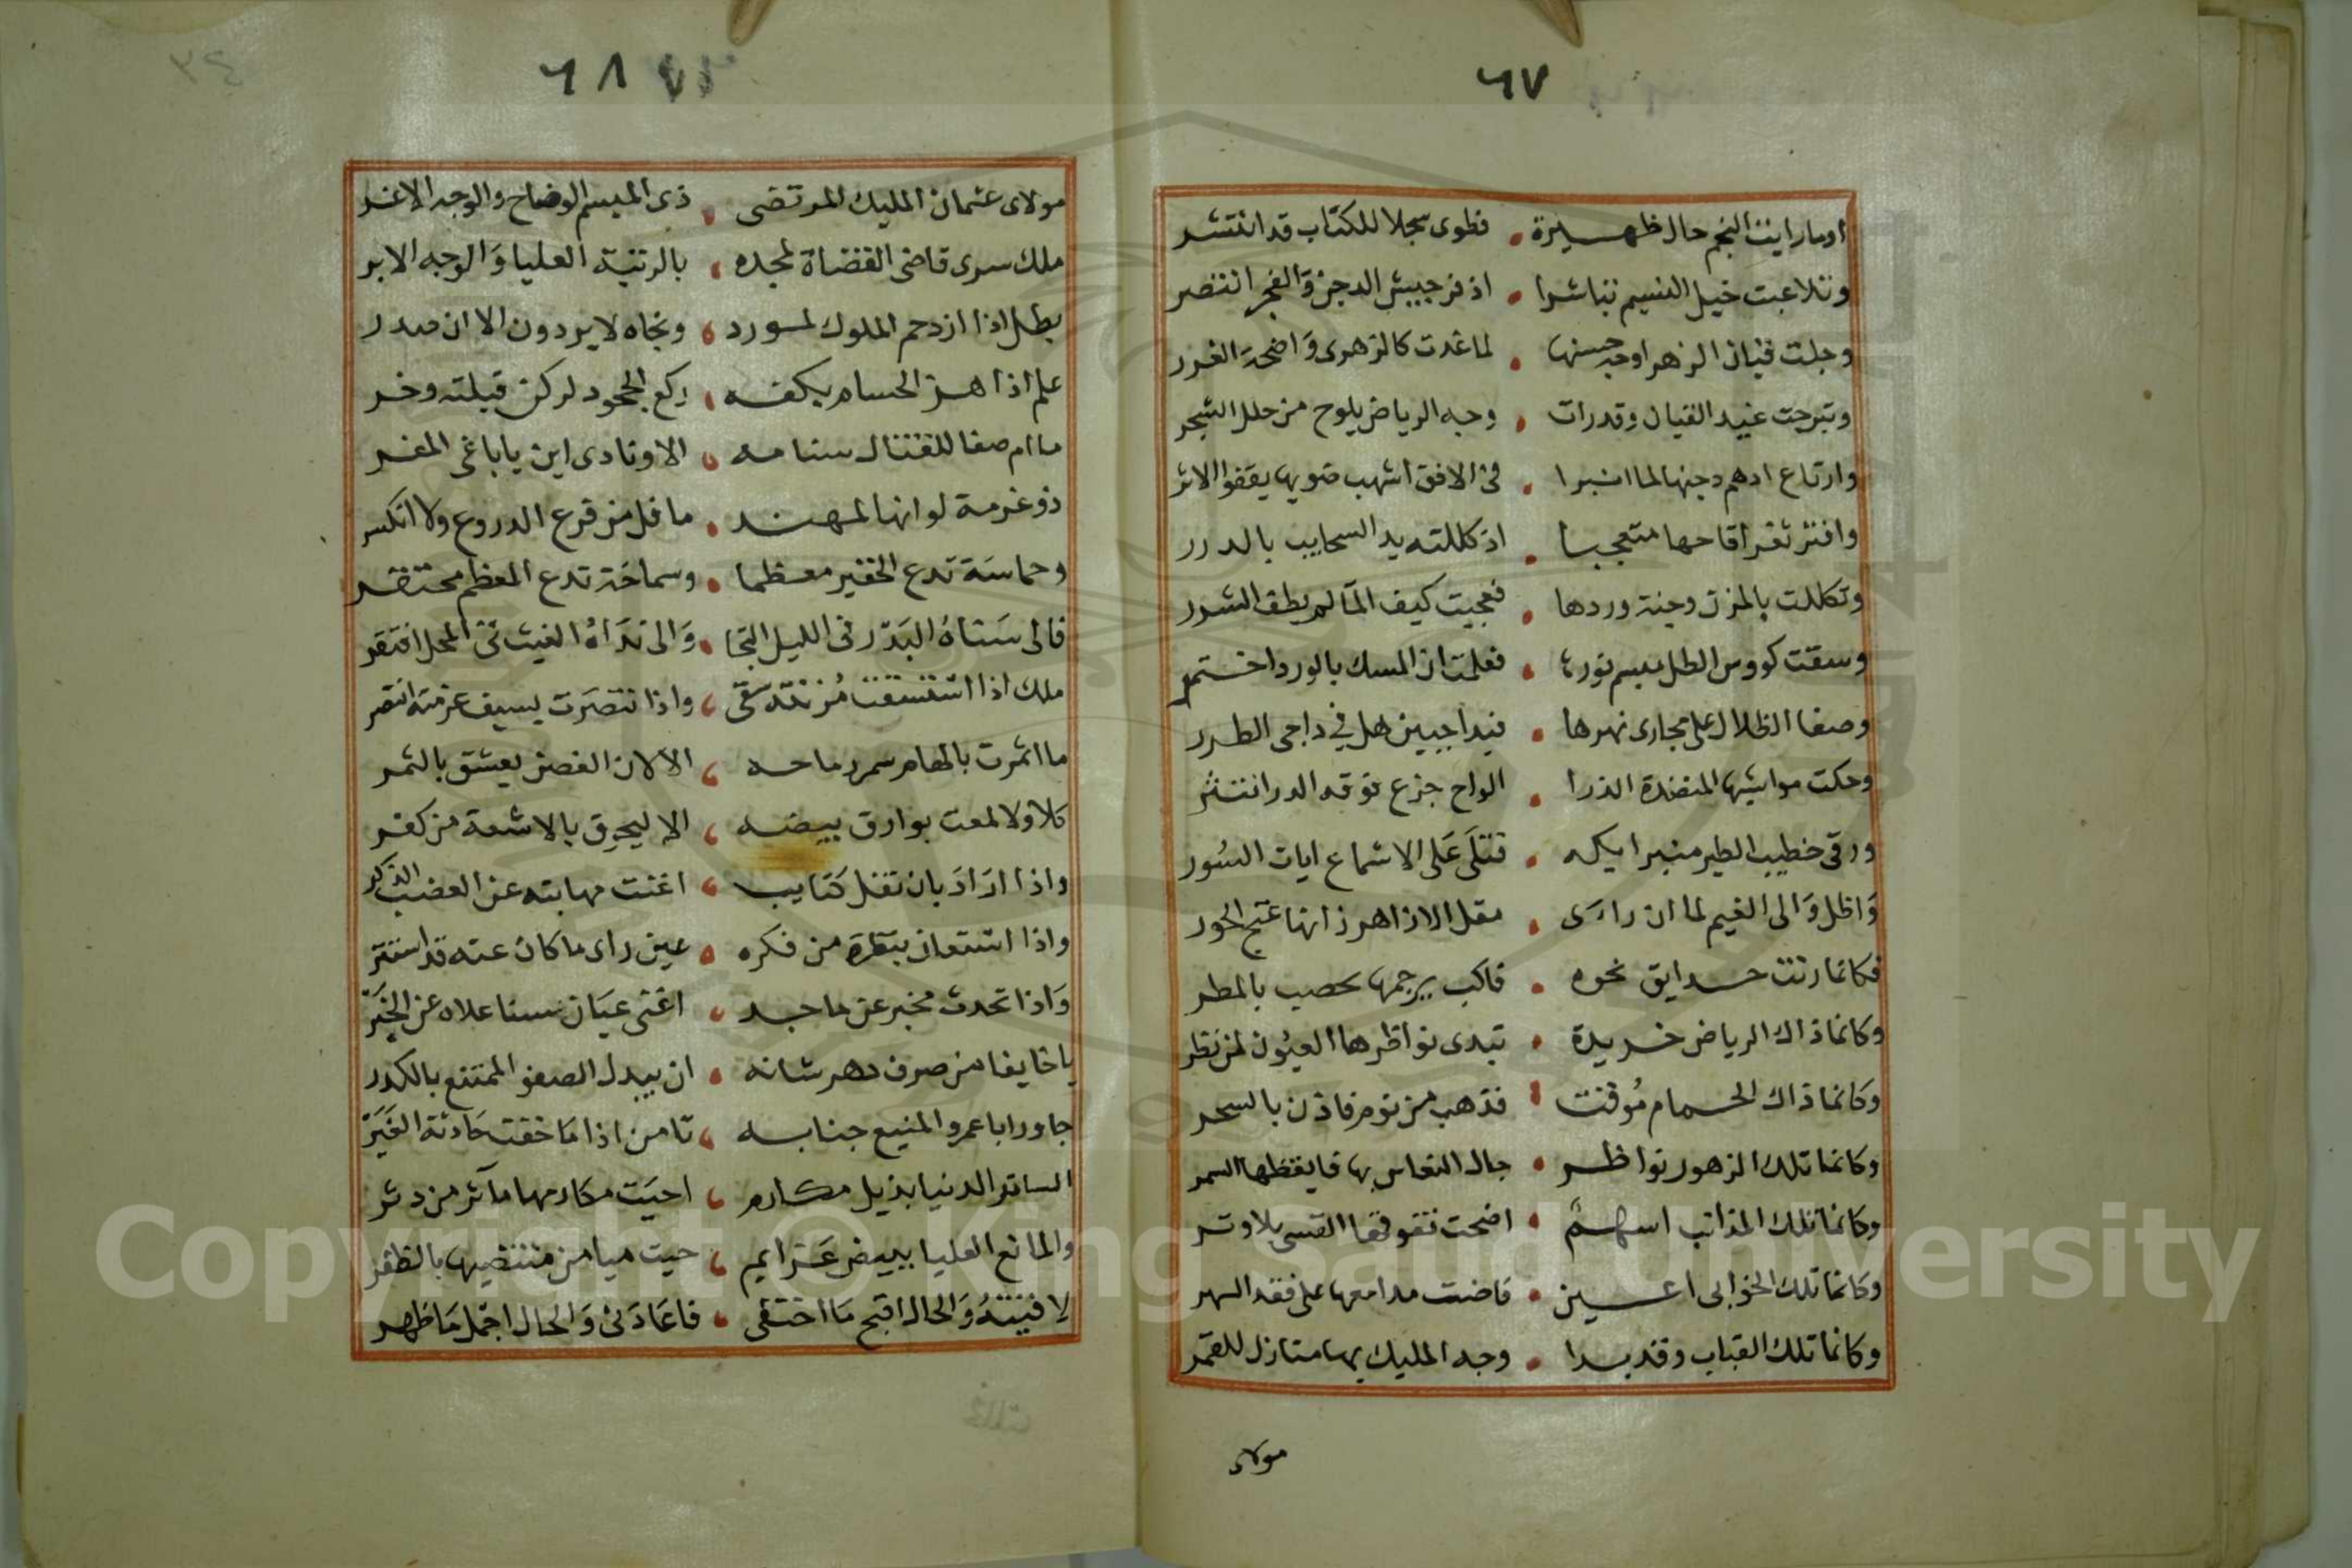 ٦٧
اوما رايت النجم حال ظهيرة . فطوى سجلا للكتاب قد انتشر
وتلاعبت خيل النسيم تباشرا . اذ فر جيش الدجن والفجر انتصر
وجلت قيان الزهر اوجه حسنها . لما غدت كالزهرى واضحة الغرر
وتبرجت غيد القيان وقدرات . وجه الرياض يلوح من حلل الشجر
وارتاع ادهم دجنها لما انبرا . في الافق اشهب ضويها يقفوا الاثر
وافتر ثغر اقاحها متعجبا . اذ كللته يد السحايب بالدرر
وتكللت بالمزن وجنة وردها . فعجبت كيف الما لم يطف الشرر
وسقت كووس الطل مبسم نورها . فعلمت ان المسك بالورد اختمر
وصفا الظلال على مجارى نهرها . فبدا جبين هل في داجى الطرر
وحكت مواشيها المنضدة الذرا . الواح جزع فوقه الدر انتثر
ورقى خطيب الطير منبر ايكه . فتلى على الاسماع ايات السور
واظل والى الغيم لما ان راى . مقل الازاهر زانها غنج الحور
فكانما رنت حدايق نحوه . فاكب يرجمها بحصب بالمطر
وكانما ذاك الرياض خريدة . تبدى نواظرها العيون لمن نظر
وكانما ذاك الحمام موقت . فذهب من نوم فاذن بالسحر
وكانما تلك الزهور نواظر . جال النعاس بها فايقظها السمر
وكانما تلك المذانب اسهم . اضحت تفوقها القسى بلا وتر
وكانما تلك الخوابى اعين . فاضت مدامعها على فقد السهر
وكانما تلك القباب وقد بدا . وجه المليك بها منازل للقمر
مولاى
٦٨
مولاى عثمان المليك المرتضى . ذى المبسم الوضاح والوجه الاغر
ملك سرى قاضى القضاة لمجده . بالرتبة العليا والوجه الابر
بطل اذا ازدحم الملوك لمورد . وتجاه لا يردون الا ان صدر
علم اذا هز الحسام بكفه . ركع الجحود لركن قبلته وخر
ما ام صفا للقتال سنامه . الا ونادى اين يا باغى المفر
ذو عزمة لو انها لمهند . ما فل من قرع الدروع ولا انكسر
وحماسة تدع الحقير معظما . وسماحة تدع المعظم محتقر
فالى سناه البدر في الليل التجا . والى نداه الغيث في المحل افتقر
ملك اذا استسقت مزنته سقى . واذا انتصرت بسيف عزمته انتصر
ما اثمرت بالهام سمر رماحه . الا لان الغصن يعشق بالثمر
كلا ولا لمعت بوارق بيضه . الا ليحرق بالاشعة من كفر
واذا اراد بان تفل كتايب . اغنت مهابته عن العضب الذكر
واذا استعان بنظرة من فكره . عين راى ما كان عنه قد استتر
واذا تحدث مخبر عن ماجد . اغنى عيان سنا علاه عن الخبر
يا خايفا من صرف دهر شانه . ان يبدل الصفو الممتنع بالكدر
جاور ابا عمرو المنيع جنابه . تامن اذا ما خفت حادثة الغير
الساتر الدنيا بذيل مكارم . احيت مكارمها مآثر من دثر
والمانع العليا ببيض عزايم . حيت ميامن منتضيها بالظفر
لاقيته والحال اقبح ما اختفى . فاعادنى والحال اجمل ما ظهر
Copyright © King Saud University